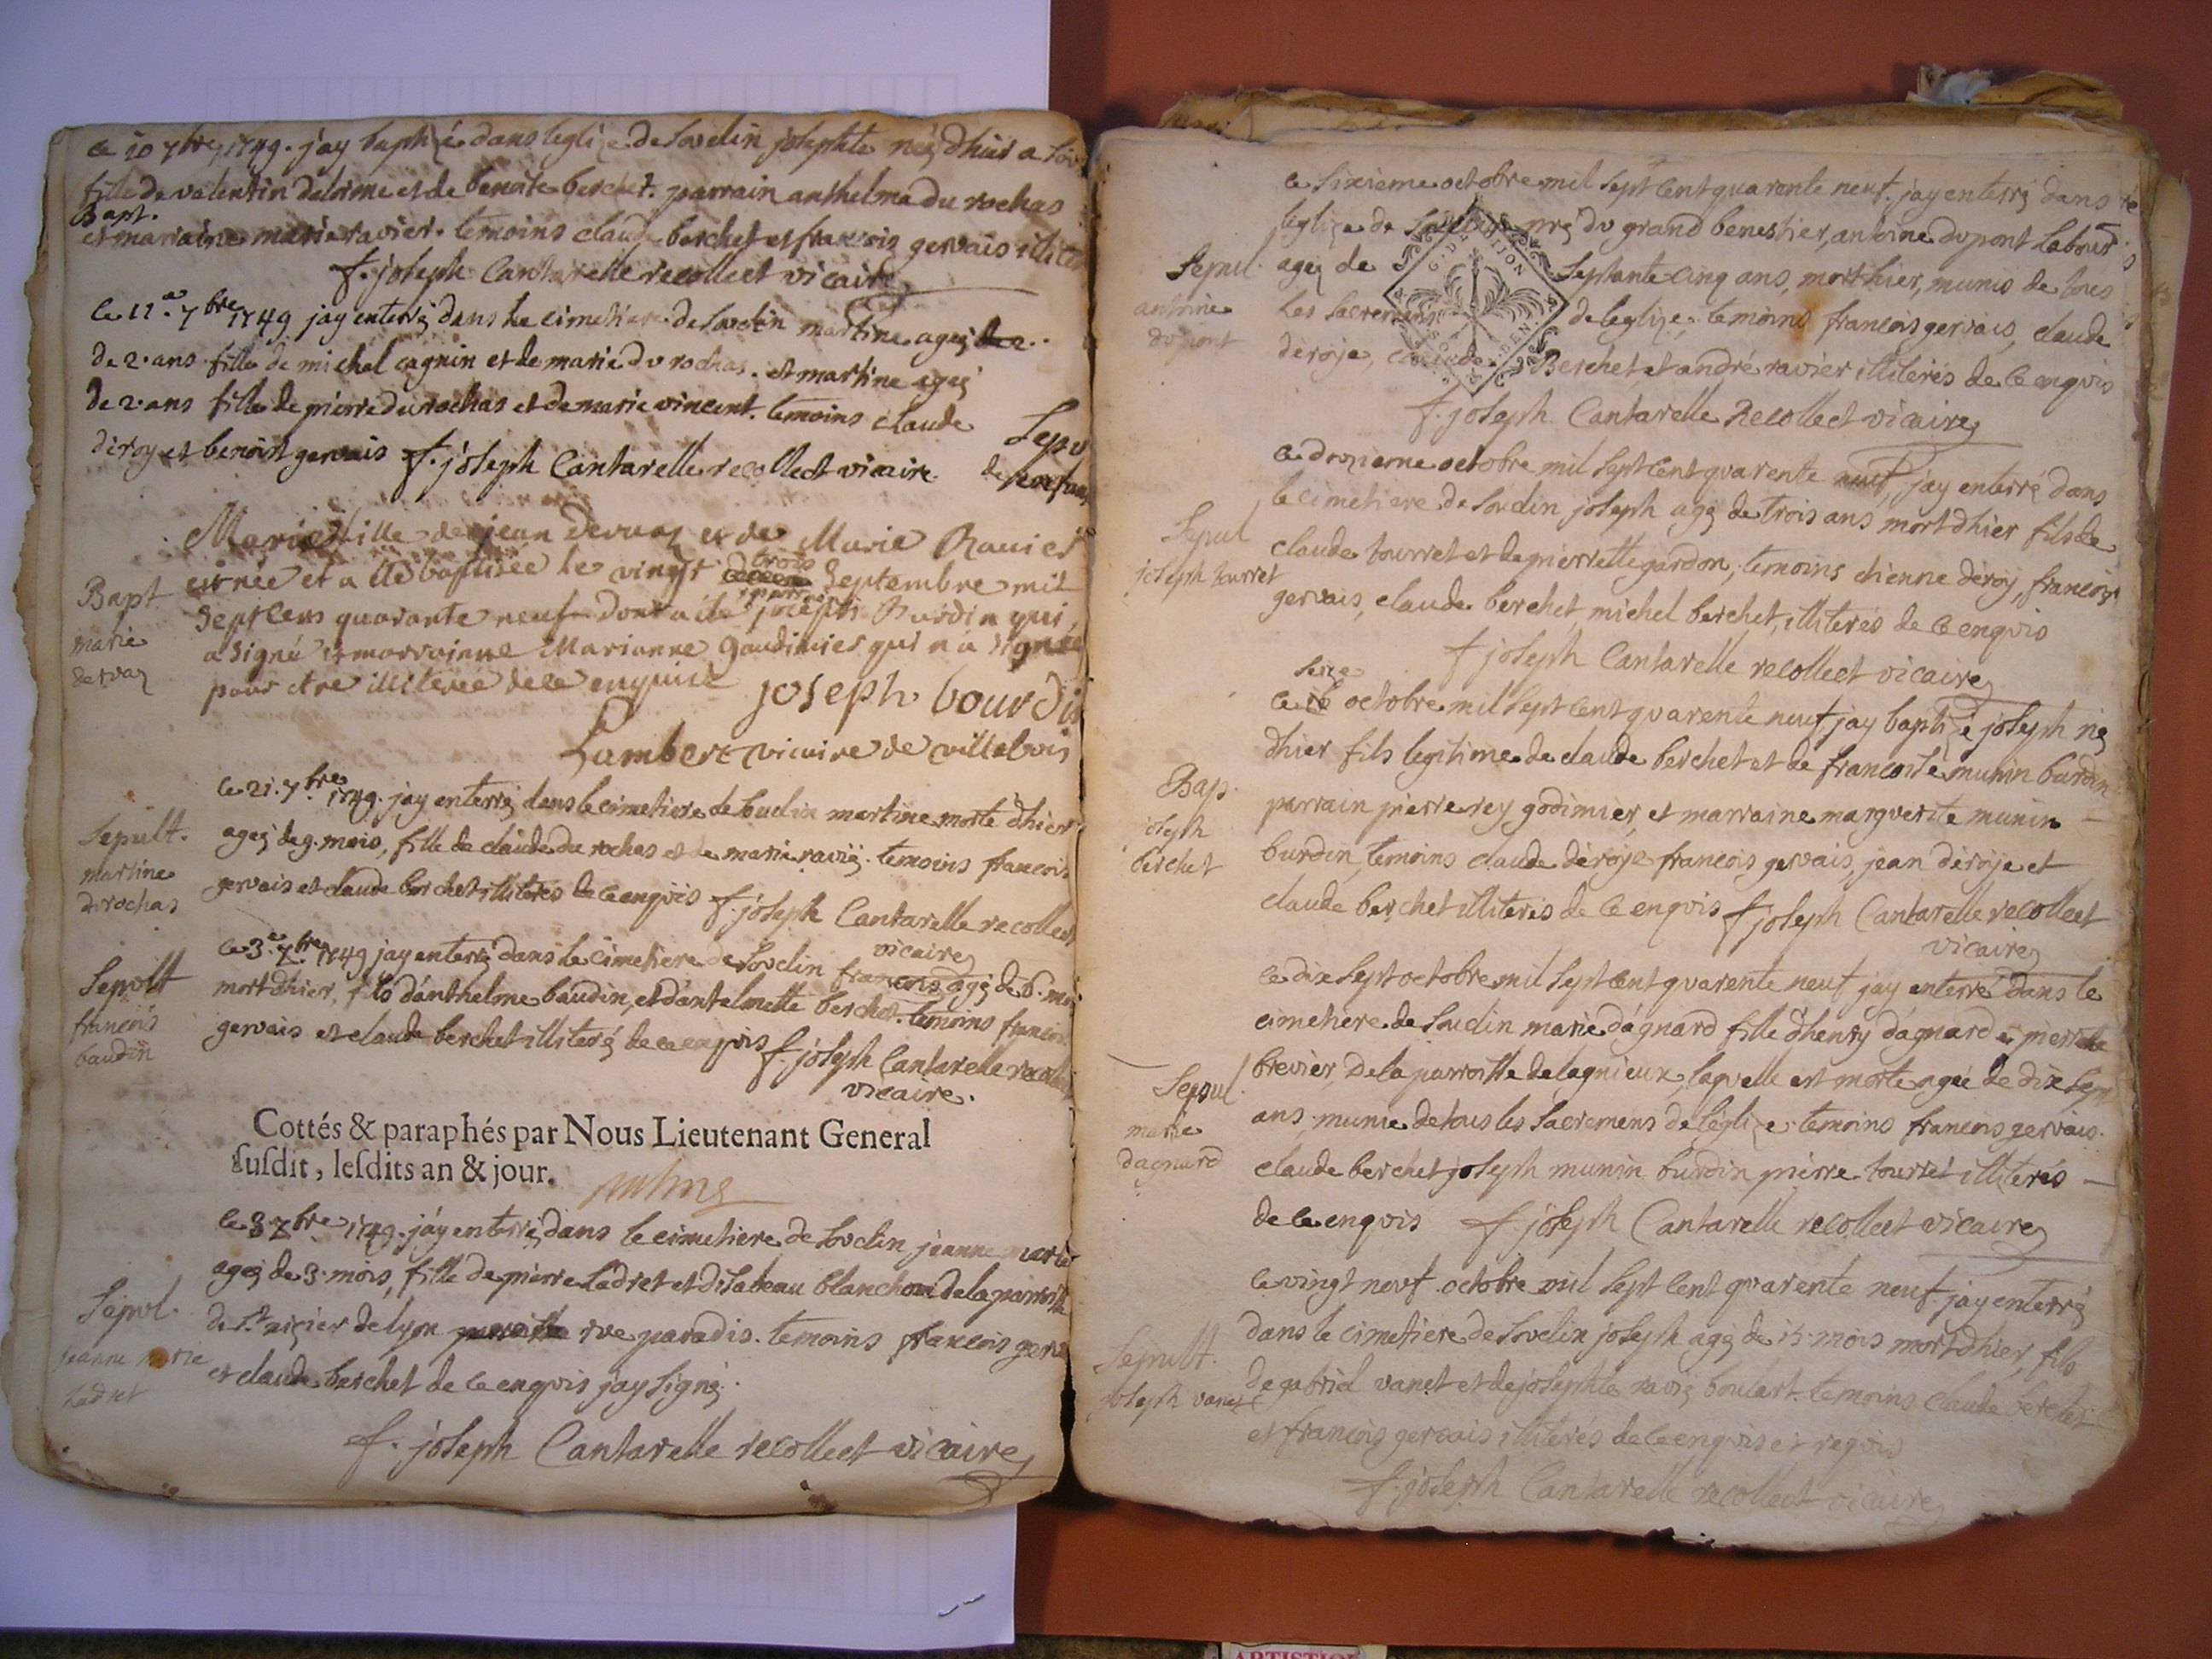 ce 10 7bre 1749. jay baptizé dans leglize de Soudin josephte née dhier a Sou
fille de valentin delorme et de benoite berchet. parrain anthelme du rochas
Bapt.
et marraine marie ravier. temoins claude berchet et francois gervais illite
f. joseph Cantarelle recollect vicaire
ce 11e 7bre 1749 jay enterré dans le cimetiere de Soudin martine ageé
de 2. ans fille de michel cagnin et de marie du rochas. et martine ageé
de 2. ans fille de pierre du rochas et de marie vincent. temoins claude
déroy et benoist gervais f. joseph Cantarelle recollect vicaire.
Sepu
de
Marie fille de jean Dervaz et de Marie Ravier
est née et a été baptisée le vingt trois Septembre mil
Sept Cens quarante neuf dont a été parrain joseph Burdin qui
a signé et marrainne Marianne Gaudimier qui n'a signée
pour etre illiterée de ce enquise joseph bourdin
Bapt
marie
dervaz
Lambert vicaire de villebois
ce 21. 7bre 1749. jay enterré dans le cimetiere de Soudin martine morte dhier
ageé de 9. mois, fille de claude du rochas et de marie ravié. temoins francois
gervais et claude berchet illiteres de ce enquis f. joseph Cantarelle recollect
vicaire
Sepult.
martine
durochas
ce 3.e 7bre 1749 jay enterré dans le cimetiere de Soudin francois agé de 6. moi
mort dhier, fils d'anthelme baudin, et d'antelmette berchet. temoins francois
gervais et claude berchet illiteré de ce enquis f. joseph Cantarelle recollect
vicaire.
Sepult
francois
baudin
Cottés & paraphés par Nous Lieutenant General
susdit, lesdits an & jour.
ce 8 7bre 1749. jay enterré dans le cimetiere de Soudin jeanne marie
ageé de 3. mois, fille de pierre Ladret et disabeau blanchon de la parroisse
de St. nizier de lyon rue paradis. temoins francois gerva
et claude berchet de ce enquis jay signé.
Sepul.
jeanne marie
ladret
f. joseph Cantarelle recollect vicaire
ce Sixieme octobre mil Sept Cent quarente neuf. jay enterré dans
léglize de Soudin pré du grand benestier, antoine dupont Laboureur
agé de Septante Cinq ans, mort hier, munis de tous
Les Sacremens de leglize. temoins francois gervais, claude
deroje, Berchet, et andré ravier illiterés de ce enquis
G. DE DIJON
Sepul.
antoine
dupont
f. joseph Cantarelle Recollect vicaire
ce dozieme octobre mil Sept Cent quarente neuf, jay enterré dans
le cimetiere de Soudin joseph agé de trois ans mort dhier fils de
claude tourret et de pierrette gardon, temoins etienne déroy, francois
gervais, claude berchet, michel berchet, illiterés de ce enquis
Sepul
joseph tourret
f joseph Cantarelle recollect vicaire
seize
ce 16 octobre mil Sept Cent quarente neuf jay baptizé joseph né
dhier fils legitime de claude berchet et de francoise munin burdin
parrain pierre rey godimier, et marraine marguerite munin
burdin, temoins claude déroje francois gervais, jean déroje et
claude berchet illiterés de ce enquis f joseph Cantarelle recollect
vicaire
Bap.
joseph
berchet
ce dix Sept octobre mil Sept Cent quarente neuf jay enterré dans le
cimetiere de Soudin marie dágnard fille dhenry dágnard et pierrette
brevier, de la parroisse de lagnieux laquelle est morte ageé de dix Sept
ans, munie de tous les Sacremens de léglize. temoins francois gervais.
claude berchet joseph munin burdin pierre tourret illiterés
de ce enquis f. joseph Cantarelle recollect vicaire
Sepul.
marie
dagnard
ce vingt neuf octobre mil Sept Cent quarente neuf jay enterré
dans le cimetiere de Soudin joseph agé de 15 mois mort dhier, fils
de gabriel vanet et de josephte ravié boulart. temoins claude berchet
et francois gervais illiterés de ce enquis et requis
Sepult.
joseph vanet
f. joseph Cantarelle recollect vicaire